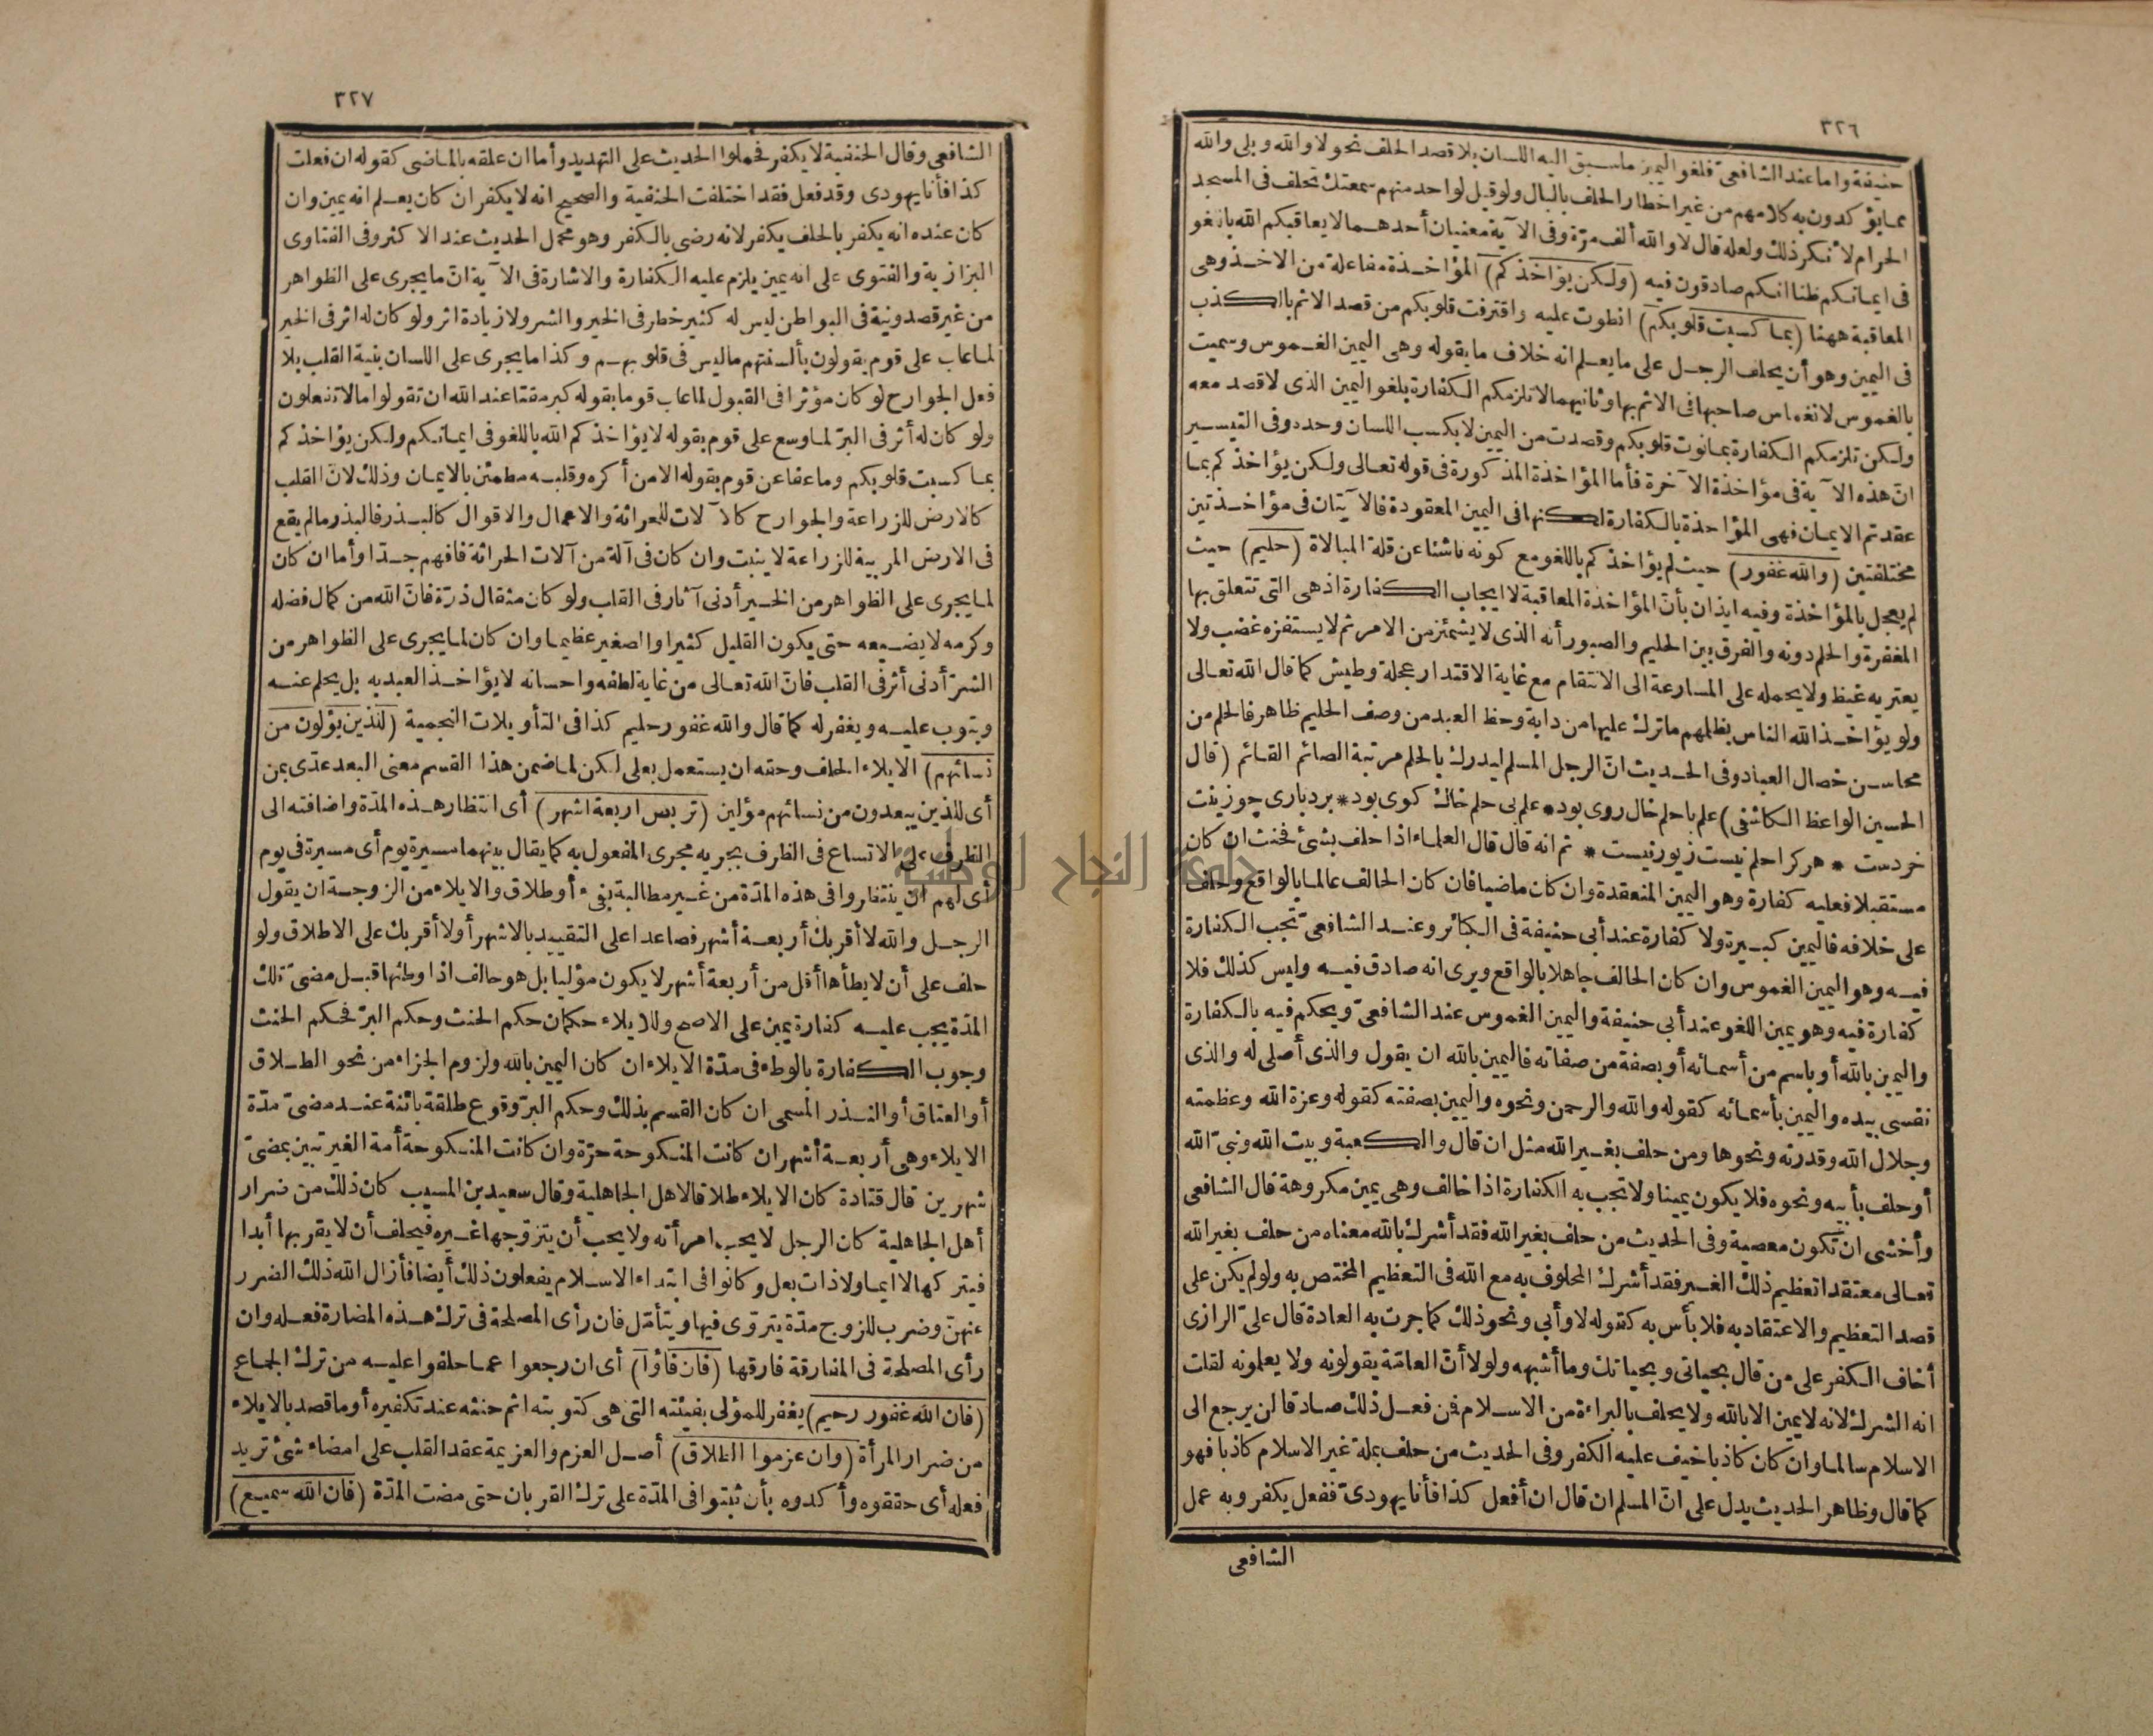 ٣٢٦
حنيفة واما عند الشافعى فلغو اليمين ما سبق اليه اللسان بلا قصد الحلف نحو لا والله وبلى والله
مما يؤكدون به كلامهم من غير اخطار الحلف بالبال ولو قيل لواحد منهم سمعتك تحلف فى المسجد
الحرام لأ نكر ذلك ولعله قال لا والله ألف مرّة وفى الآية معنيان أحدهما لا يعاقبكم الله بالغو
فى ايمانكم ظنا انكم صادقون فيه (ولكن يؤاخذكم) المؤاخذة مفاعلة من الاخذ وهى
المعاقبة ههنا (بما كسبت قلوبكم) انطوت عليه واقترفت قلوبكم من قصد الاثم بالكذب
فى اليمين وهو أن يحلف الرجل على ما يعلم انه خلاف ما يقوله وهى اليمين الغموس وسميت
بالغموس لانغماس صاحبها فى الاثم بها وثانيهما لا تلزمكم الكفارة بلغو اليمين الذى لا قصد معه
ولكن تلزمكم الكفارة بما نوت قلوبكم وقصدت من اليمين لا بكسب اللسان وحده وفى التيسير
انّ هذه الآية فى مؤاخذة الآخرة فأما المؤاخذة المذكورة فى قوله تعالى ولكن يؤاخذكم بما
عقدتم الايمان فهى المؤاخذة بالكفارة لكنها فى اليمين المعقودة فالآيتان فى مؤاخذتين
مختلفتين (والله غفور) حيث لم يؤاخذكم باللغو مع كونه ناشئا عن قلة المبالاة (حليم) حيث
لم يعجل بالمؤاخذة وفيه ايذان بأنّ المؤاخذة المعاقبة لا ايجاب الكفارة اذ هى التى تتعلق بها
المغفرة والحلم دونه والفرق بين الحليم والصبور أنه الذى لا يشمئز من الامر ثم لا يستفزه غضب ولا
يعتريه غيظ ولا يحمله على المسارعة الى الانتقام مع غاية الاقتدار عجلة وطيش كما قال الله تعالى
ولو يؤاخذ الله الناس بظلمهم ما ترك عليها من دابة وحظ العبد من وصف الحليم ظاهر فالحلم من
محاسن خصال العباد وفى الحديث انّ الرجل المسلم ليدرك بالحلم مرتبة الصائم القائم (قال
الحسين الواعظ الكاشفى) علم با حلم خال روى بود* علم بى حلم خاك كوى بود* بردبارى چو زينت
خردست * هركرا حلم نيست زيور نيست * ثم انه قال قال العلماء اذا حلف بشئ فحنث ان كان
مستقبلا فعليه كفارة وهو اليمين المنعقدة وان كان ماضيا فان كان الحالف عالما بالواقع وحلف
على خلافه فاليمين كبيرة ولا كفارة عند أبى حنيفة فى الكبائر وعند الشافعىّ تجب الكفارة
فيه وهو اليمين الغموس وان كان الحالف جاهلا بالواقع ويرى انه صادق فيه وليس كذلك فلا
كفارة فيه وهو يمين اللغو عند أبى حنيفة واليمين الغموس عند الشافعىّ ويحكم فيه بالكفارة
واليمين بالله أو باسم من أسمائه أو بصفة من صفاته فاليمين بالله ان يقول والذى أصلى له والذى
نفسى بيده واليمين بأسمائه كقوله والله والرحمن ونحوه واليمين بصفته كقوله وعزة الله وعظمته
وجلال الله وقدرته ونحوها ومن حلف بغير الله مثل ان قال والكعبة وبيت الله ونبىّ الله
أو حلف بأبيه ونحوه فلا يكون يمينا ولا تجب به الكفارة اذا خالف وهى يمين مكروهة قال الشافعى
وأخشى ان تكون معصية وفى الحديث من حلف بغير الله فقد أشرك بالله معناه من حلف بغير الله
تعالى معتقدا تعظيم ذلك الغير فقد أشرك المحلوف به مع الله فى التعظيم المختص به ولو لم يكن على
قصد التعظيم والاعتقاد به فلا بأس به كقوله لا وأبى ونحو ذلك كما جرت به العادة قال علىّ الرازى
أخاف الكفر على من قال بحياتى وبحياتك وما أشبهه ولولا أنّ العامّة يقولونه ولا يعلمونه لقلت
انه الشرك لانه لا يمين الا بالله ولا يحلف بالبراءة من الاسلام فمن فعل ذلك صادقا لن يرجع الى
الاسلام سالما وان كان كاذبا خيف عليه الكفر وفى الحديث من حلف بملة غير الاسلام كاذبا فهو
كما قال وظاهر الحديث يدل على انّ المسلم ان قال ان أفعل كذا فأنا يهودىّ ففعل يكفر وبه عمل
الشافعى
٣٢٧
الشافعى وقال الحنفية لا يكفر فحملوا الحديث على التهديد وأما ان علقه بالماضى كقوله ان فعلت
كذا فأنا يهودى وقد فعل فقد اختلفت الحنفية والصحيح انه لا يكفر ان كان يعلم انه يمين وان
كان عنده انه يكفر بالحلف يكفر لانه رضى بالكفر وهو محمل الحديث عند الاكثر وفى الفتاوى
البزازية والفتوى على انه يمين يلزم عليه الكفارة والاشارة فى الآية انّ ما يجرى على الظواهر
من غير قصد ونية فى البواطن ليس له كثير خطر فى الخير والشر ولا زيادة اثر ولو كان له اثر فى الخير
لما عاب على قوم يقولون بألسنتهم ما ليس فى قلوبهم وكذا ما يجرى على اللسان بنية القلب بلا
فعل الجوارح لو كان مؤثرا فى القبول لما عاب قوما بقوله كبر مقتا عند الله ان تقولوا ما لا تفعلون
ولو كان له أثر فى البرّ لما وسع على قوم بقوله لا يؤاخذكم الله باللغو فى ايمانكم ولكن يؤاخذكم
بما كسبت قلوبكم وما عفا عن قوم بقوله الا من أكره وقلبه مطمئن بالايمان وذلك لانّ القلب
كالارض للزراعة والجوارح كالآلات للحراثة والاعمال والاقوال كالبذر فالبذر ما لم يقع
فى الارض المربية للزراعة لا ينبت وان كان فى آلة من آلات الحراثة فافهم جدّا وأما ان كان
لما يجرى على الظواهر من الخير أدنى آثار فى القلب ولو كان مثقال ذرّة فانّ الله من كمال فضله
وكرمه لا يضيعه حتى يكون القليل كثيرا والصغير عظيما وان كان لما يجرى على الظواهر من
الشرّ أدنى أثر فى القلب فانّ الله تعالى من غاية لطفه واحسانه لا يؤاخذ العبد به بل يحلم عنه
ويتوب عليه ويغفر له كما قال والله غفور حليم كذا فى التأويلات النجمية (للذين يؤلون من
نسائهم) الايلاء الحلف وحقه ان يستعمل بعلى لكن لما ضمن هذا القسم معنى البعد عدّى بمن
أى للذين يبعدون من نسائهم مؤلين (تربص اربعة اشهر) أى انتظار هذه المدّة واضافته الى
الظرف على الاتساع فى الظرف بجريه مجرى المفعول به كما يقال بينهما مسيرة يوم أى مسيرة فى يوم
أى لهم ان ينتظروا فى هذه المدّة من غير مطالبة بفىء أو طلاق والايلاء من الزوجة ان يقول
الرجل والله لا أقربك أربعة أشهر فصاعدا على التقييد بالاشهر أو لا أقربك على الاطلاق ولو
حلف على أن لا يطأها أقل من أربعة أشهر لا يكون مؤليا بل هو حالف اذا وطئها قبل مضىّ تلك
المدّة يجب عليه كفارة يمين على الاصح وللايلاء حكمان حكم الحنث وحكم البرّ فحكم الحنث
وجوب الكفارة بالوطء فى مدّة الايلاء ان كان اليمين بالله ولزوم الجزاء من نحو الطلاق
أو العتاق أو النذر المسمى ان كان القسم بذلك وحكم البرّ وقوع طلقة بائنة عند مضىّ مدّة
الايلاء وهى أربعة أشهر ان كانت المنكوحة حرّة وان كانت المنكوحة أمة الغير تبين بمضىّ
شهرين قال قتادة كان الايلاء طلاقا لاهل الجاهلية وقال سعيد بن المسيب كان ذلك من ضرار
أهل الجاهلية كان الرجل لا يحب امرأته ولا يحب أن يتزوّجها غيره فيحلف أن لا يقربها أبدا
فيتركها لا ايما ولا ذات بعل وكانوا فى ابتداء الاسلام يفعلون ذلك أيضا فأزال الله ذلك الضرر
عنهنّ وضرب للزوج مدّة يتروّى فيها ويتأمّل فان رأى المصلحة فى ترك هذه المضارة فعله وان
رأى المصلحة فى المفارقة فارقها (فان فاؤا) أى ان رجعوا عما حلفوا عليه من ترك الجماع
(فان الله غفور رحيم) يغفر للمؤلى بفيئته التى هى كتوبته اثم حنثه عند تكفيره أو ما قصد بالايلاء
من ضرار المرأة (وان عزموا الطلاق) أصل العزم والعزيمة عقد القلب على امضاء شئ تريد
فعله أى حققوه وأكدوه بأن ثبتوا فى المدّة على ترك القربان حتى مضت المدّة (فان الله سميع)
جامعة النجاح الوطنية